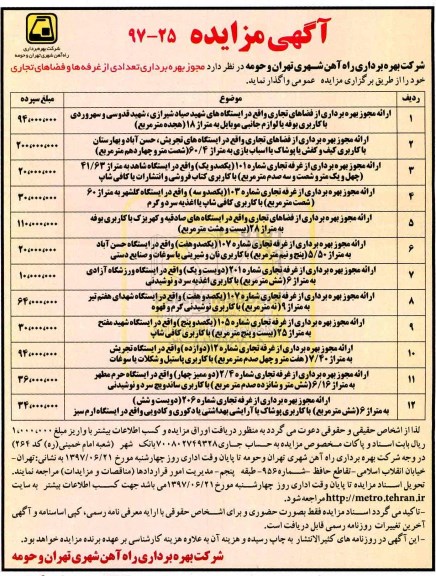 آگهی مزایده ۲۵-۹۷
شرکت بهره برداری
راه آهن شهری تهران و حومه
شرکت بهره برداری راه آهن شهری تهران و حومه در نظر دارد مجوز بهره برداری تعدادی از غرفه ها و فضاهای تجاری
خود را از طریق برگزاری مزایده عمومی واگذار نماید.
ردیف موضوع مبلغ سپرده
۱ ارائه مجوز بهره برداری از فضاهای تجاری واقع در ایستگاه های شهید صیاد شیرازی، شهید قدوسی و سهروردی
با کاربری بوفه یا لوازم جانبی موبایل به متراژ ۱۸ (هجده مترمربع) ۹۴،۰۰۰،۰۰۰
۲ ارائه مجوز بهره برداری از فضاهای تجاری واقع در ایستگاه های تجریش، حسن آباد و بهارستان
با کاربری کیف و کفش یا پوشاک یا اسباب بازی به متراژ ۶۰/۴ (شصت متر و چهار دهم مترمربع) ۲۰۰،۰۰۰،۰۰۰
۳ ارائه مجوز بهره برداری از غرفه تجاری شماره ۱۰۱ (یکصد و یک) واقع در ایستگاه شاهد به متراژ ۴۱/۶۳
(چهل و یک متر و شصت و سه صدم مترمربع) با کاربری کتاب فروشی و انتشارات یا کافی شاپ ۲۰،۰۰۰،۰۰۰
۴ ارائه مجوز بهره برداری از غرفه تجاری شماره ۱۰۳ (یکصد و سه) واقع در ایستگاه گلشهر به متراژ ۶۰
(شصت مترمربع) با کاربری کافی شاپ یا اغذیه سرد و گرم ۳۰،۰۰۰،۰۰۰
۵ ارائه مجوز بهره برداری از فضاهای تجاری واقع در ایستگاه های صادقیه و کهریزک با کاربری بوفه
به متراژ ۲۸ (بیست و هشت مترمربع) ۱۱۰،۰۰۰،۰۰۰
۶ ارائه مجوز بهره برداری از غرفه تجاری شماره ۱۰۷ (یکصد و هفت) واقع در ایستگاه حسن آباد
به متراژ ۵/۵۰ (پنج و نیم مترمربع) با کاربری نان و شیرینی یا سوغات و صنایع دستی ۲۰،۰۰۰،۰۰۰
۷ ارائه مجوز بهره برداری از غرفه تجاری شماره ۲۰۱ (دویست و یک) واقع در ایستگاه ورزشگاه آزادی
به متراژ ۶ (شش مترمربع) با کاربری اغذیه سرد و نوشیدنی ۱۰،۰۰۰،۰۰۰
۸ ارائه مجوز بهره برداری از غرفه تجاری شماره ۱۰۷ (یکصد و هفت) واقع در ایستگاه شهدای هفتم تیر
به متراژ ۹ (نه مترمربع) با کاربری نوشیدنی گرم و قهوه ۶۴،۰۰۰،۰۰۰
۹ ارائه مجوز بهره برداری از غرفه تجاری شماره ۱۰۵ (یکصد و پنج) واقع در ایستگاه شهید مفتح
به متراژ ۲۵ (بیست و پنج مترمربع) با کاربری کافی شاپ ۳۰،۰۰۰،۰۰۰
۱۰ ارائه مجوز بهره برداری از غرفه تجاری شماره ۱۲ (دوازده) واقع در ایستگاه تجریش
به متراژ ۷/۴۰ (هفت متر و چهل صدم مترمربع) با کاربری پاستیل و شکلات یا سوغات ۹۴،۰۰۰،۰۰۰
۱۱ ارائه مجوز بهره برداری از غرفه تجاری شماره ۲/۴ (دو ممیز چهار) واقع در ایستگاه حرم مطهر
به متراژ ۶/۱۶ (شش متر و شانزده صدم مترمربع) با کاربری ساندویچ سرد و نوشیدنی ۳۶،۰۰۰،۰۰۰
۱۲ ارائه مجوز بهره برداری از غرفه تجاری شماره ۲۰۶ (دویست و شش)
به متراژ ۶ (شش مترمربع) با کاربری پوشاک یا آرایشی بهداشتی یا دکوری و کادویی واقع در ایستگاه ارم سبز ۳۴،۰۰۰،۰۰۰
لذا از اشخاص حقیقی و حقوقی دعوت می گردد به منظور دریافت اوراق مزایده و کسب اطلاعات بیشتر با واریز مبلغ ۱،۰۰۰،۰۰۰
ریال بابت اسناد و پاکات مخصوص مزایده به حساب جاری ۷۰۰۸۰۲۷۹۳۲۸ بانک شهر (شعبه امام خمینی(ره) کد ۲۶۴)
در وجه شرکت بهره برداری راه آهن شهری تهران و حومه تا پایان وقت اداری روز چهارشنبه مورخ ۱۳۹۷/۰۶/۲۱ به نشانی: تهران-
خیابان انقلاب اسلامی-تقاطع حافظ -شماره ۹۵۶-طبقه پنجم-مدیریت امور قراردادها (مناقصات و مزایدات) مراجعه نمایند.
تحویل اسناد مزایده تا پایان وقت اداری روز چهارشنبه مورخ ۱۳۹۷/۰۶/۲۱ می باشد جهت کسب اطلاعات بیشتر به سایت
http://metro.tehran.ir مراجعه شود.
-تاکید می گردد اسناد مزایده فقط بصورت حضوری و برای اشخاص حقوقی با ارایه معرفی نامه رسمی، کپی اساسنامه و آگهی
آخرین تغییرات روزنامه رسمی قابل دریافت است.
-این آگهی در روزنامه های کثیرالانتشار به چاپ رسیده و هزینه آن به علاوه هزینه کارشناسی بر عهده برنده مزایده خواهد بود.
شرکت بهره برداری راه آهن شهری تهران و حومه